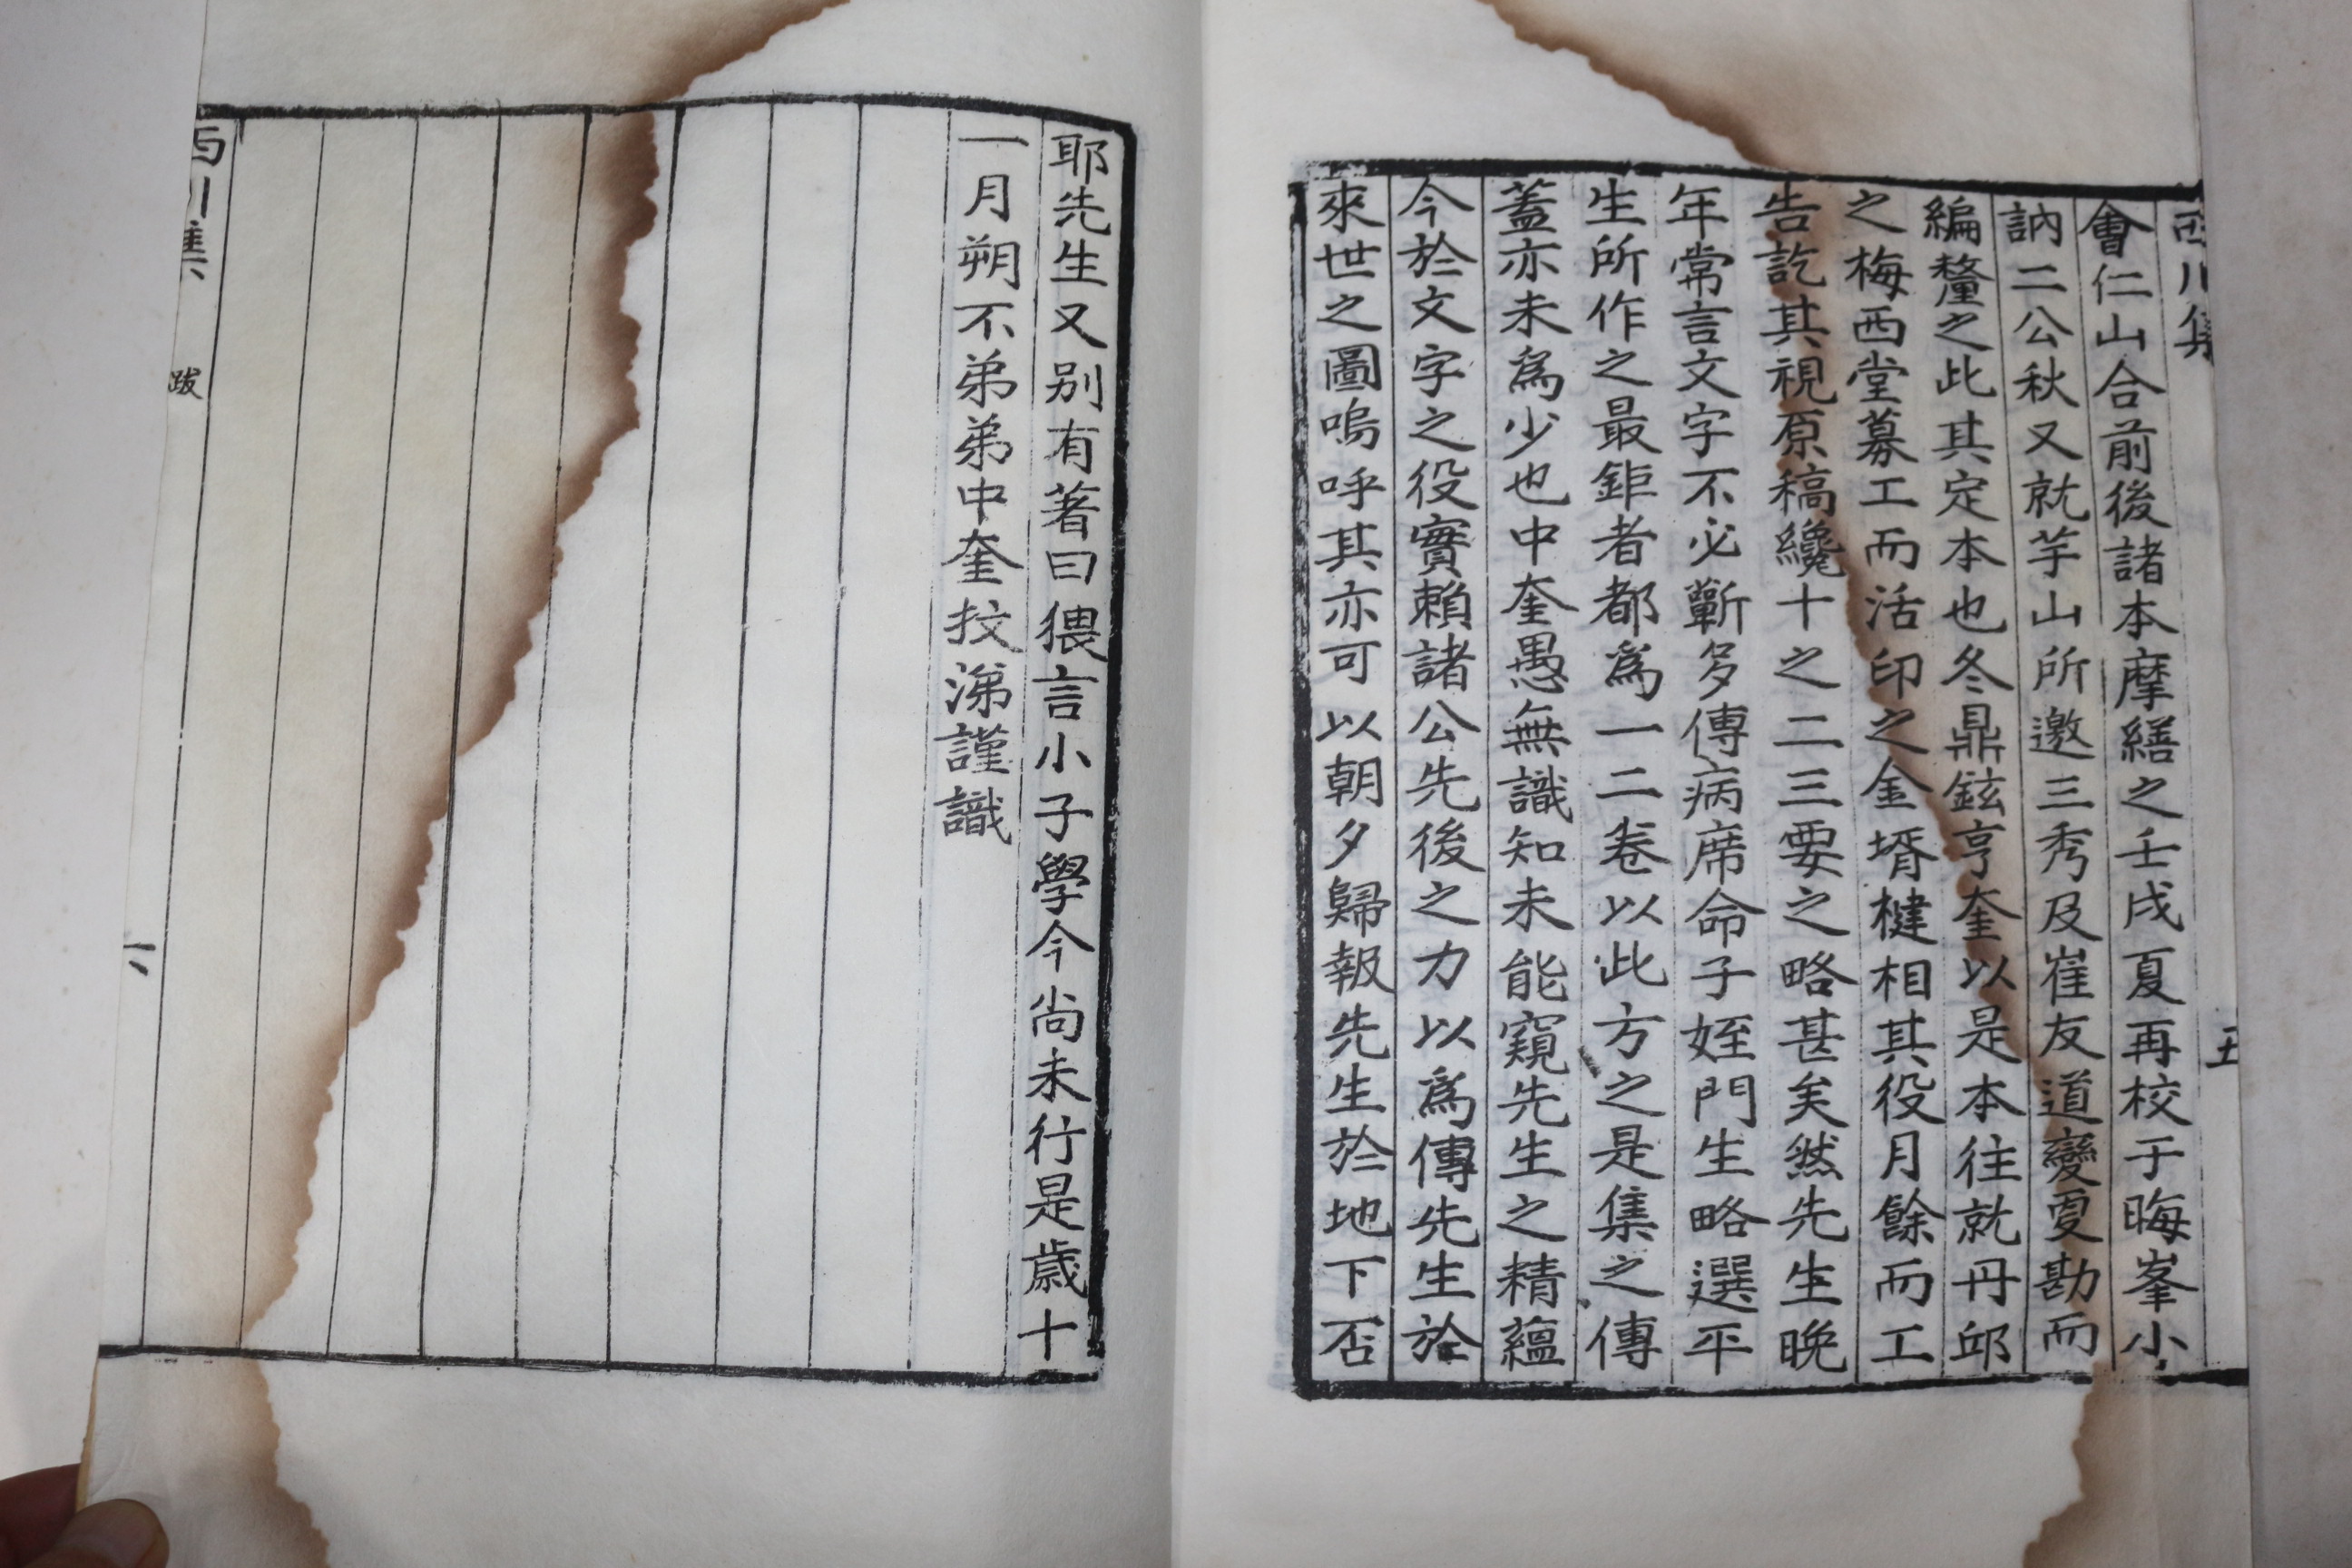 西川集
五
會仁山合前後諸本摩繕之壬戌夏再校于晦峯小
訥二公秋又就芋山所邀三秀及崔友道燮更勘而
編釐之此其定本也冬鼎鉉亨奎以是本往就丹邱
之梅西堂募工而活印之金壻楗相其役月餘而工
告訖其視原稿纔十之二三要之略甚矣然先生晚
年常言文字不必蘄多傳病席命子姪門生略選平
生所作之最鉅者都爲一二卷以此方之是集之傳
蓋亦未爲少也中奎愚無識知未能窺先生之精蘊
今於文字之役實賴諸公先後之力以爲傳先生於
來世之圖嗚呼其亦可以朝夕歸報先生於地下否
耶先生又别有著曰猥言小子學今尚未行是歲十
一月朔不弟弟中奎抆涕謹識
西川集
跋
六